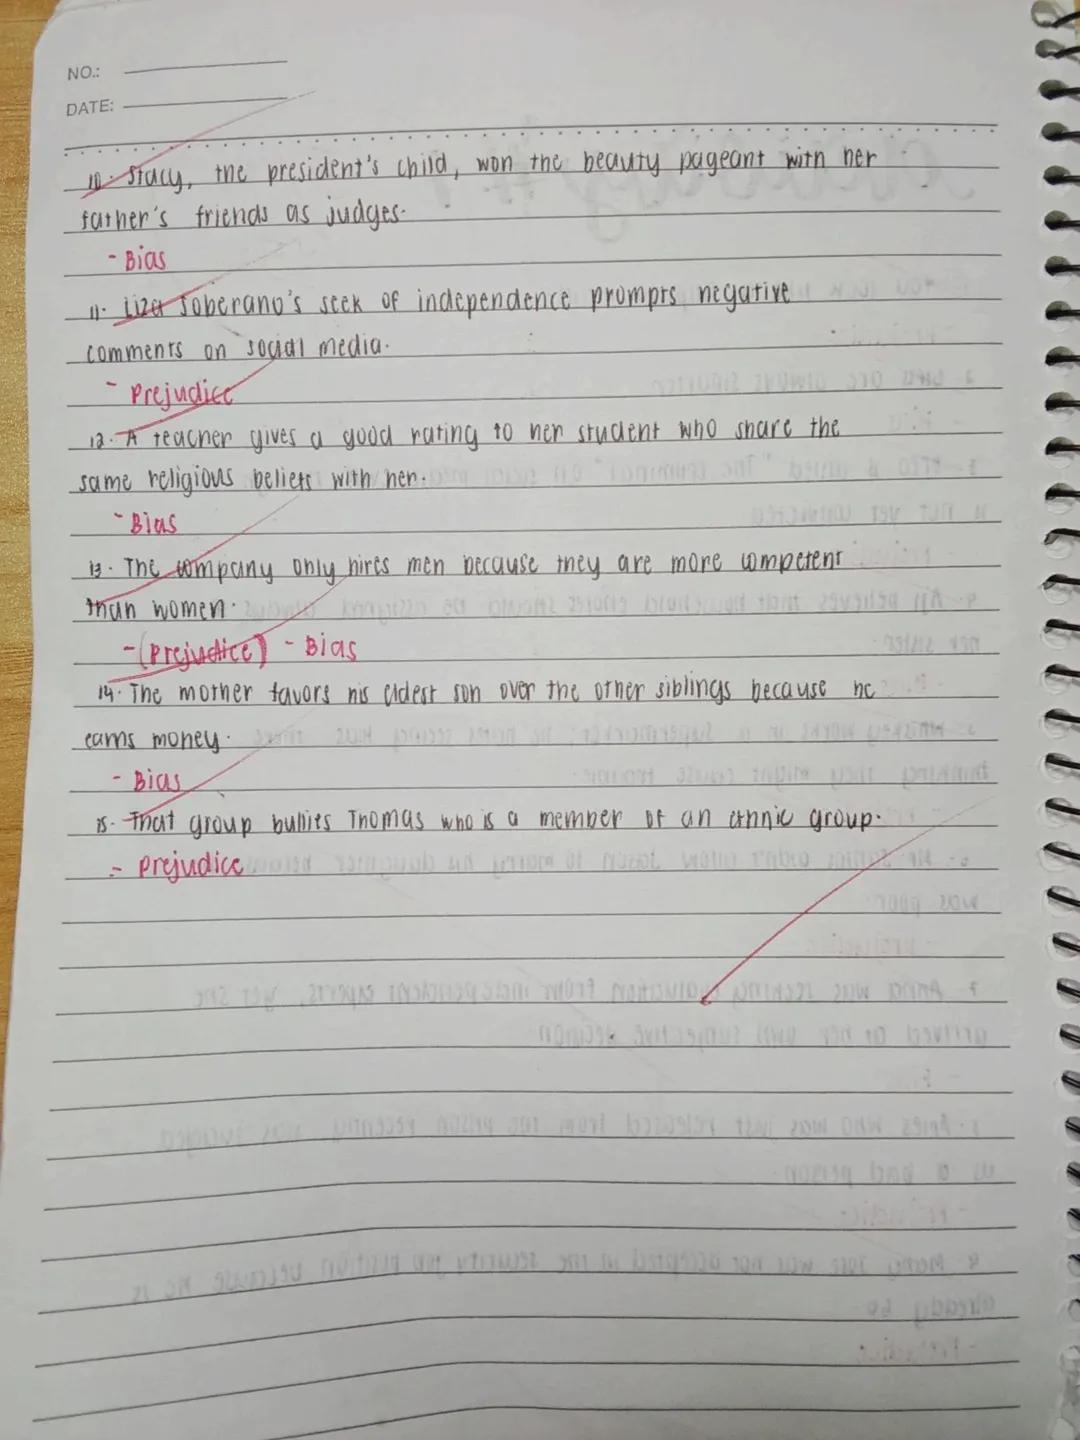 NO.:
DATE:
10. Stacy, the president's child, won the beauty pageant with her
father's friends as judges.
- Bias
11. Liza Soberano's seek of independence prompts negative
comments on social media.
- Prejudice
12. A teacher gives a good rating to her student who share the
same religious beliefs with her.
- Bias
13. The company only hires men because they are more competent
than women.
- (Prejudice) - Bias
14. The mother favors his eldest son over the other siblings because he
earns money.
- Bias
15. That group bullies Thomas who is a member of an ethnic group.
- Prejudice